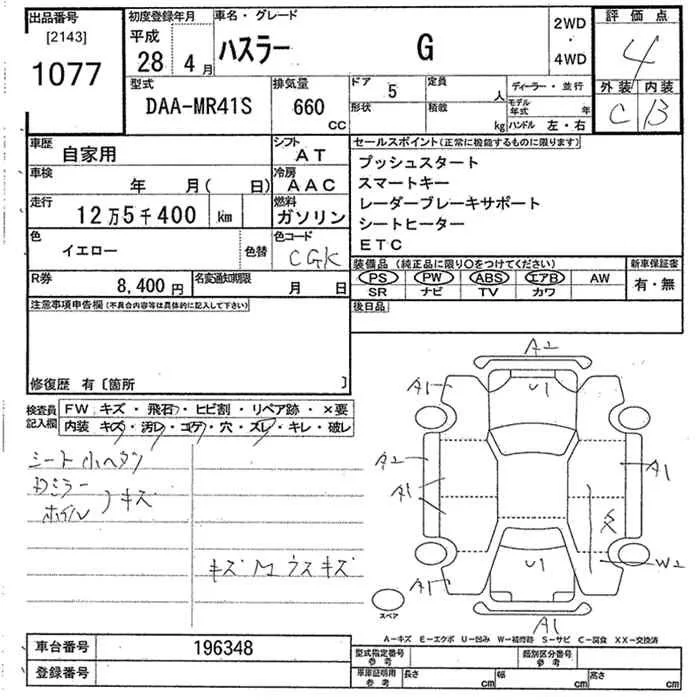 出品番号 [2143] 1077
初度登録年月 平成 28年 4月
車名・グレード ハスラー G
2WD・4WD
評価点 4
外装 内装
C B
型式 DAA-MR41S
排気量 660 CC
ドア 5 定員 人
形状 積載 kg
ディーラー・並行
モデル年式 年
ハンドル 左・右
車歴 自家用
シフト AT
車検 年 月( 日)
冷房 AAC
走行 12万5千400 km
燃料 ガソリン
色 イエロー 色替
色コード CGK
R券 8,400円
名変通知期限 月 日
セールスポイント(正常に機能するものに限ります)
プッシュスタート
スマートキー
レーダーブレーキサポート
シートヒーター
ETC
装備品 (純正品に限り○をつけてください)
PS PW ABS エアB AW
SR ナビ TV カワ
新車保証書 有・無
後日品
注意事項申告欄(不具合内容等は具体的に記入して下さい)
修復歴 有〔箇所 〕
検査員記入欄
FW キズ・飛石・ヒビ割・リペア跡・×要
内装 キズ・汚レ・コゲ・穴・ズレ・キレ・破レ
シート小ヘタリ
ドミラー
ホイル
キズ
キズM ウスキズ
A2
A1 U1
A2 A1
A1
W2
A1 U1
A1
スペア
A-キズ E-エクボ U-凹み W-補修跡 S-サビ C-腐食 XX-交換済
車台番号 196348
登録番号
型式指定番号 参考
類別区分番号 参考
車庫証明用 参考 長さ cm 幅 cm 高さ cm